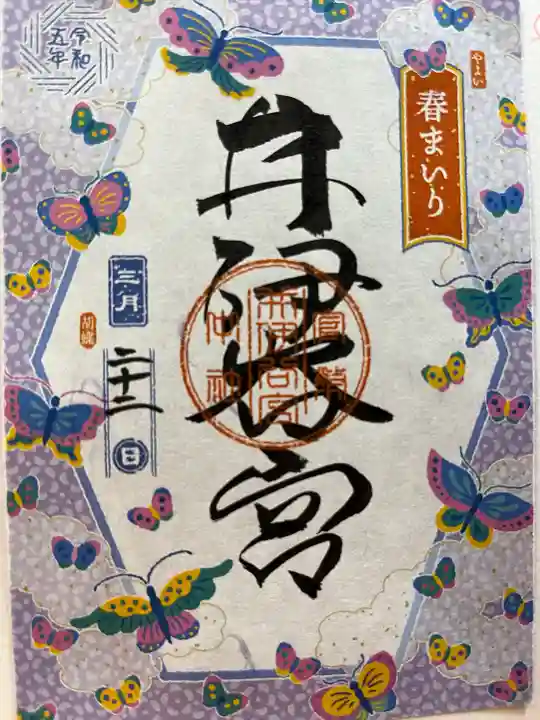 やよい
春まいり
井伊谷宮
官幣
井伊谷宮
中社
令和
五年
三月
二十二日
胡蝶